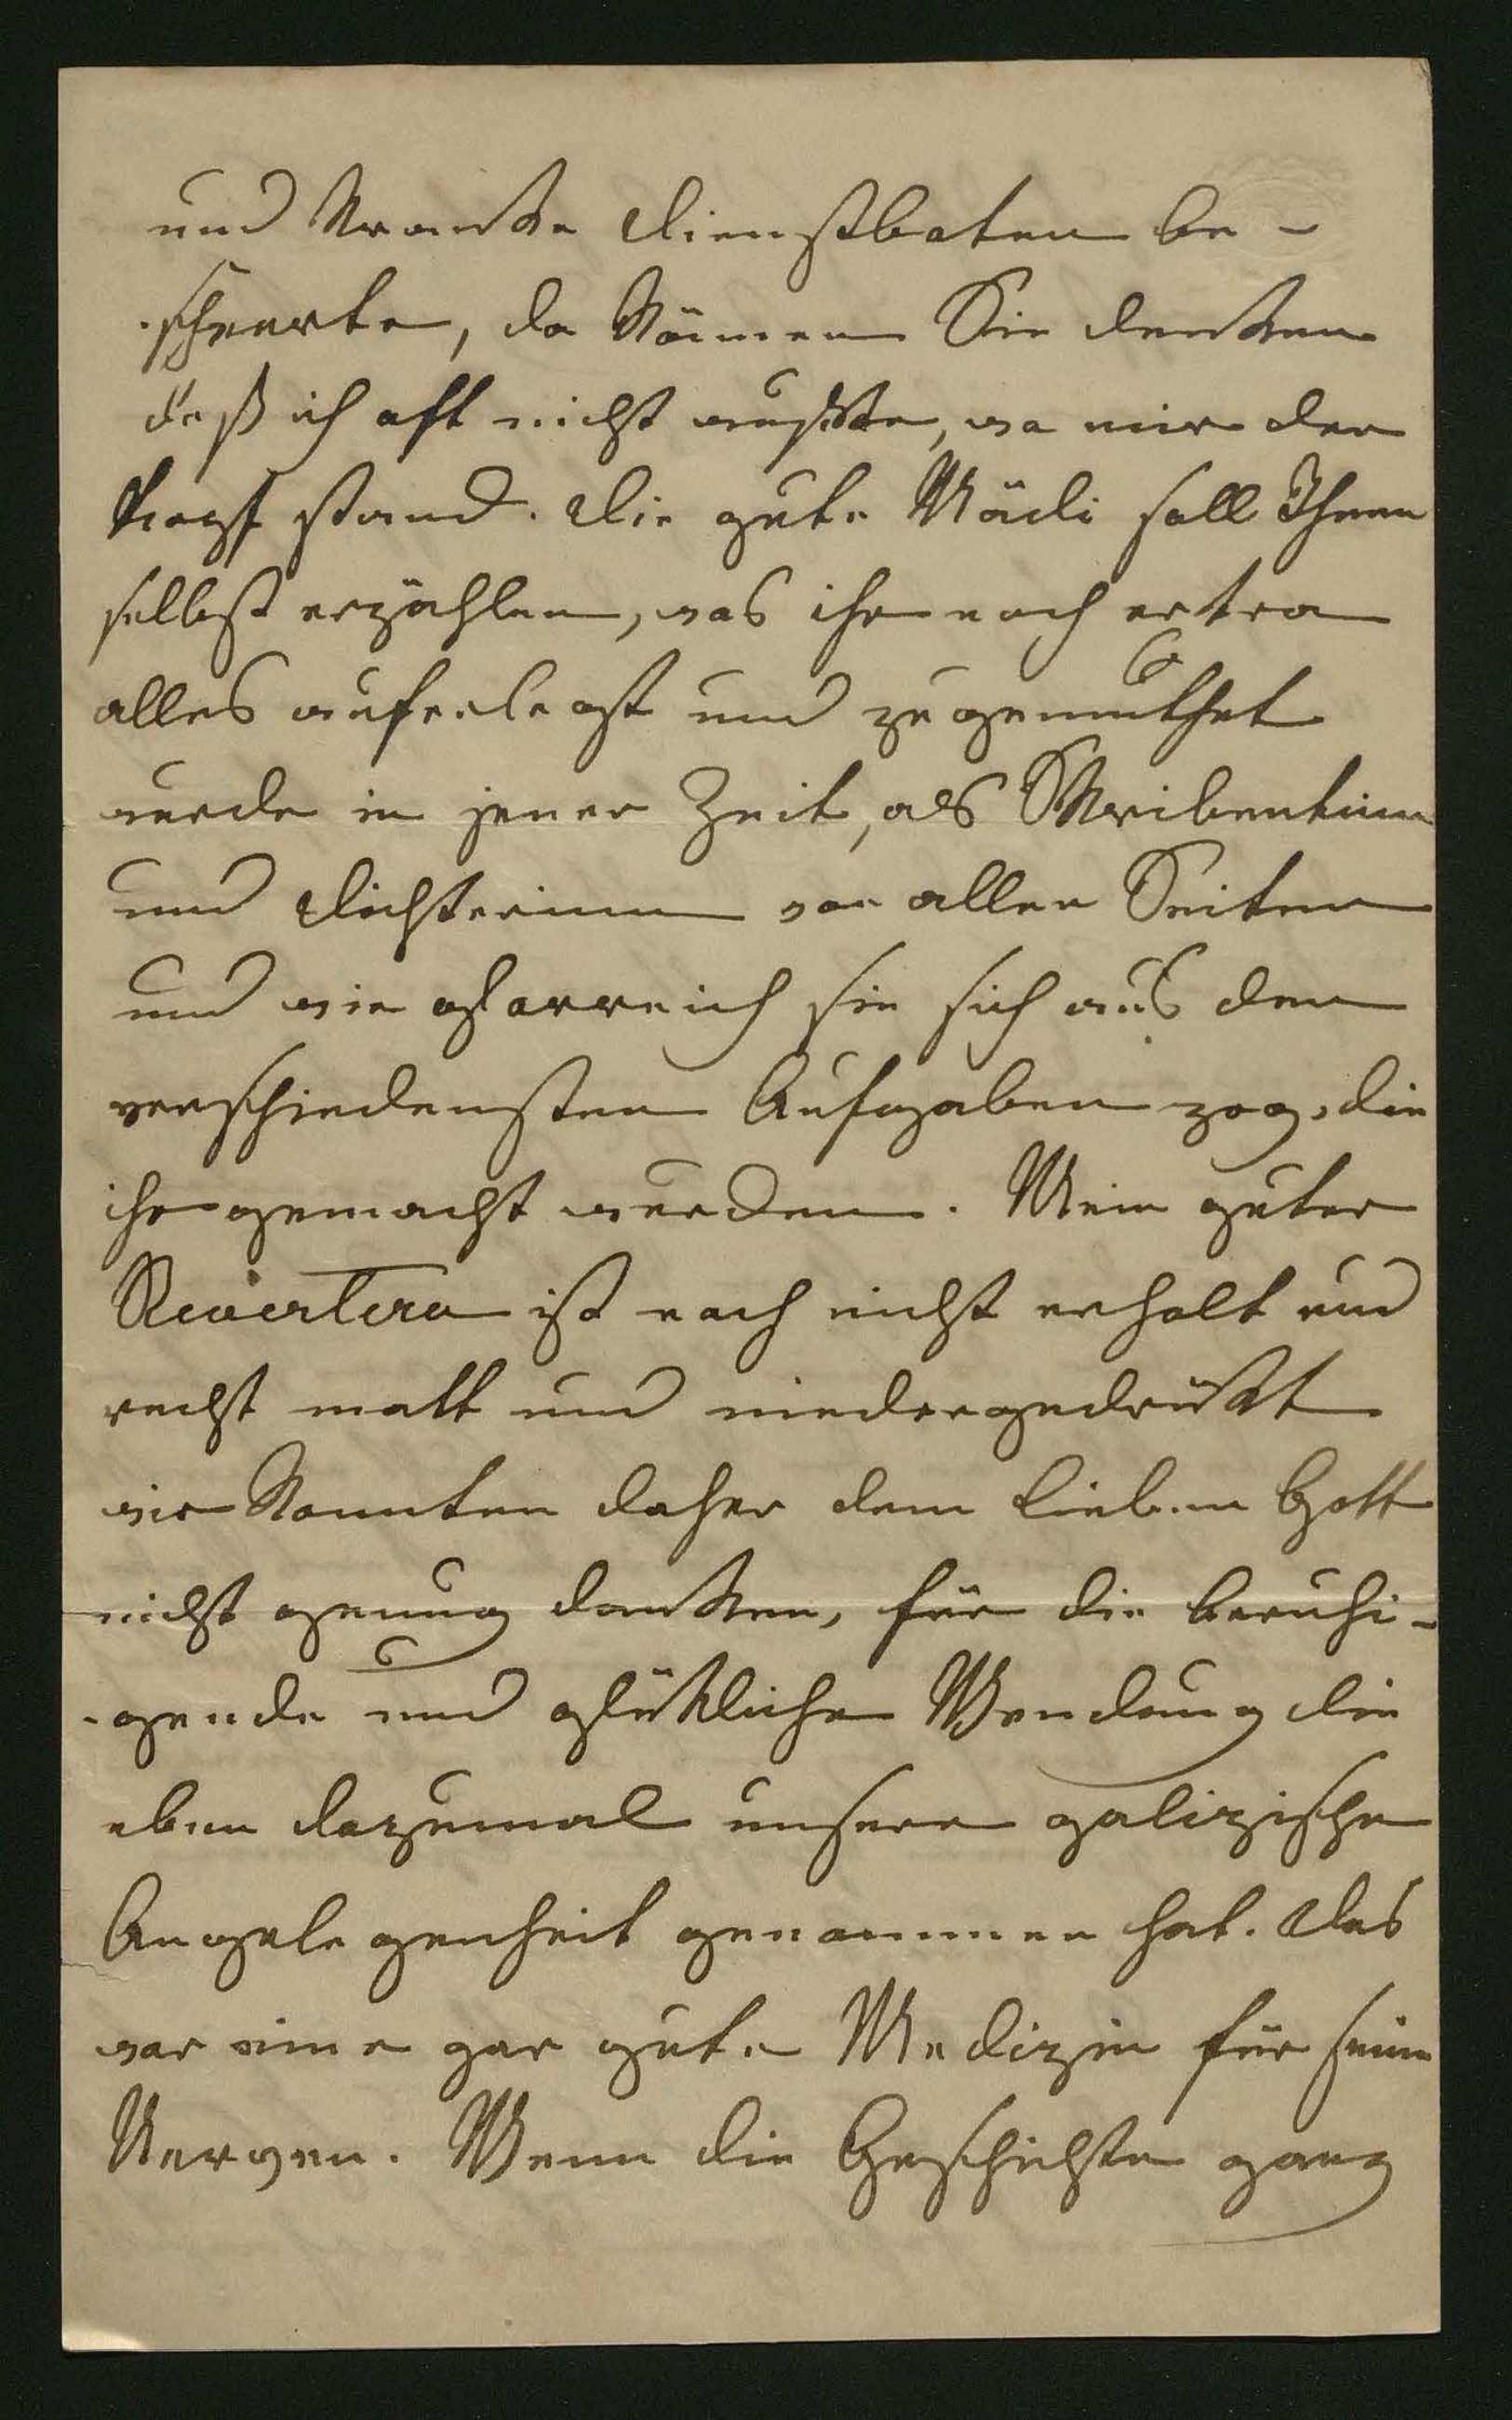 und kranke Dienstboten be-
scheerte, da können Sie denken
daß ich oft nicht wußte, wo mir der
Kopf stand. Die gute Mädi soll Ihnen
selbst erzählen, was ihr noch extra
alles auferlegt und zugemuthet
wurde in jener Zeit, als Skribentinn
und Dichterinn von allen Seiten
und wie glorreich sie sich aus den
verschiedensten Aufgaben zog, die
ihr gemacht wurden. Mein guter
Revertera ist noch nicht erholt und
recht matt und niedergedrückt
wir konnten daher dem lieben Gott
nicht genug danken, für die beruhi-
-gende und glückliche Wendung die
eben dazumal unsere galizische
Angelegenheit genommen hat. Das
war eine gar gute Medizin für seine
Nerven. Wenn die Geschichte ganz